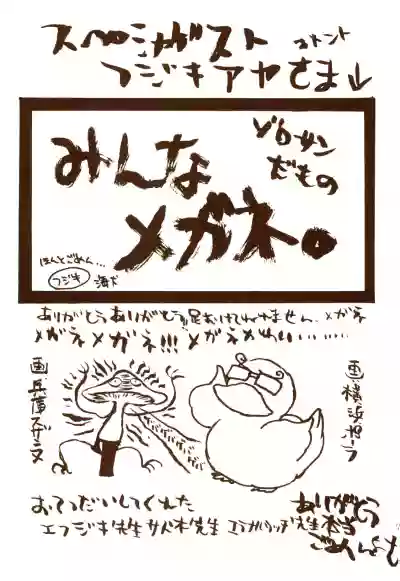 スペシャルゲスト コメント
フジキアヤさま↓
ゾロサン
だもの
みんな
メガネ。
ほんとごめん…
フジキ
ありがとうありがとう!!足むけてねれません。メガネ
メガネメガネ!!! メガネめがい………
画・兵庫スザンヌ
画・横浜ポーラ
おてつだいしてくれた
エフジキ先生 サバ木先生
先生本当
ありがとう
ごめんよも